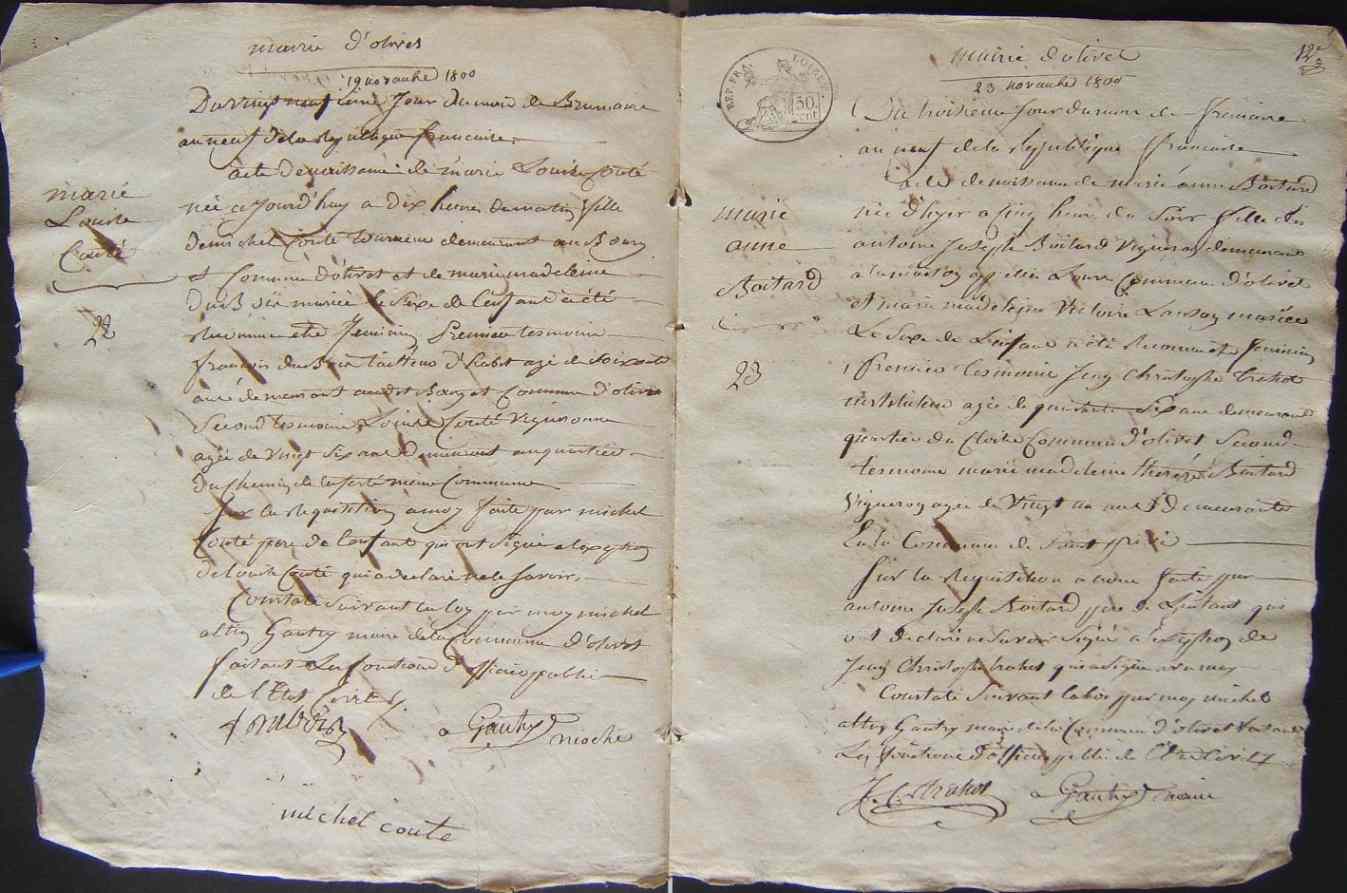 mairie d'olivet
19 novembre 1800
Du vingt neuf ieme Jour du mois de Brumaire
an neuf de la Republique francaise
acte de naissance de marie Louise Couté
née ajourd'huy a dix heures du matin fille
de michel Couté demeurant au Bourg
et Commune d'olivet et de marie madeleine
Dubois mariée le sexe de l'enfant a été
Reconnue etre feminin premier tesmoin
francois dubois tailleur d'habit agé de soixante
ans demeurant audit Bourg et Commune d'olivet
Second tesmoine Louise Couté Vigneronne
agée de Vingt Six ans Demeurant au quartier
Du Chemin de la ferté meme Commune
Sur la Requisition a moy faite par michel
Couté pere de l'enfant qui ont Signé a l'exception
de louise Couté qui a declaré ne le Savoir
Constaté Suivant la loy par moy michel
altin Gautry maire de la Commune d'olivet
faisant les fonctions d'officier public
de l'Etat Civil
f dubois
a Gautry
michel couté
marie
Louise
Couté
22
12e
REP. FRA.
LOIRET
50
cent
mairie d'olivet
23 novembre 1800
Du troisieme Jour du mois de frimaire
an neuf de la Republique francaise
acte de naissance de marie anne Boitard
née d'hyer a cinq heures du Soir fille de
antoine Joseph Boitard Vigneron demeurant
a la maison appellée Commune d'olivet
et marie madeleine Victoire mariée
Le Sexe de L'enfant a été Reconnu etre feminin
premier tesmoine Jean Christophe trahot
instituteur agé de quarante Six ans demeurant
quartier du Cloitre Commune d'olivet Second
tesmoine marie madeleine therese Boitard
Vigneron agée de Vingt un ans Demeurante
En la Commune de Saint privé
Sur la Requisition a moy faite par
antoine Joseph Boitard pere de L'enfant qui
ont declaré ne Savoir Signé a l'exception de
Jean Christophe trahot qui a Signé avec moy
Constaté Suivant la loi par moy michel
altin Gautry maire de la Commune d'olivet faisant
Les fonctions d'officier public de l'Etat Civil
J. C. trahot
a Gautry maire
marie
anne
Boitard
23